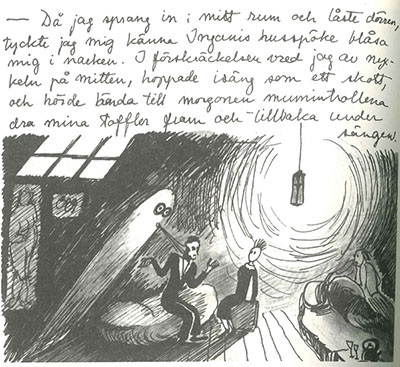 — Då jag sprang in i mitt rum och låste dörren,
tyckte jag mig känna Ingenis husspöke blåsa
mig i nacken. I förskräckelsen vred jag av nyc-
keln på mitten, hoppade isäng som ett skott,
och hörde ända till morgonen mumintrollena
dra mina tofflor fram och tillbaka under
sängen.